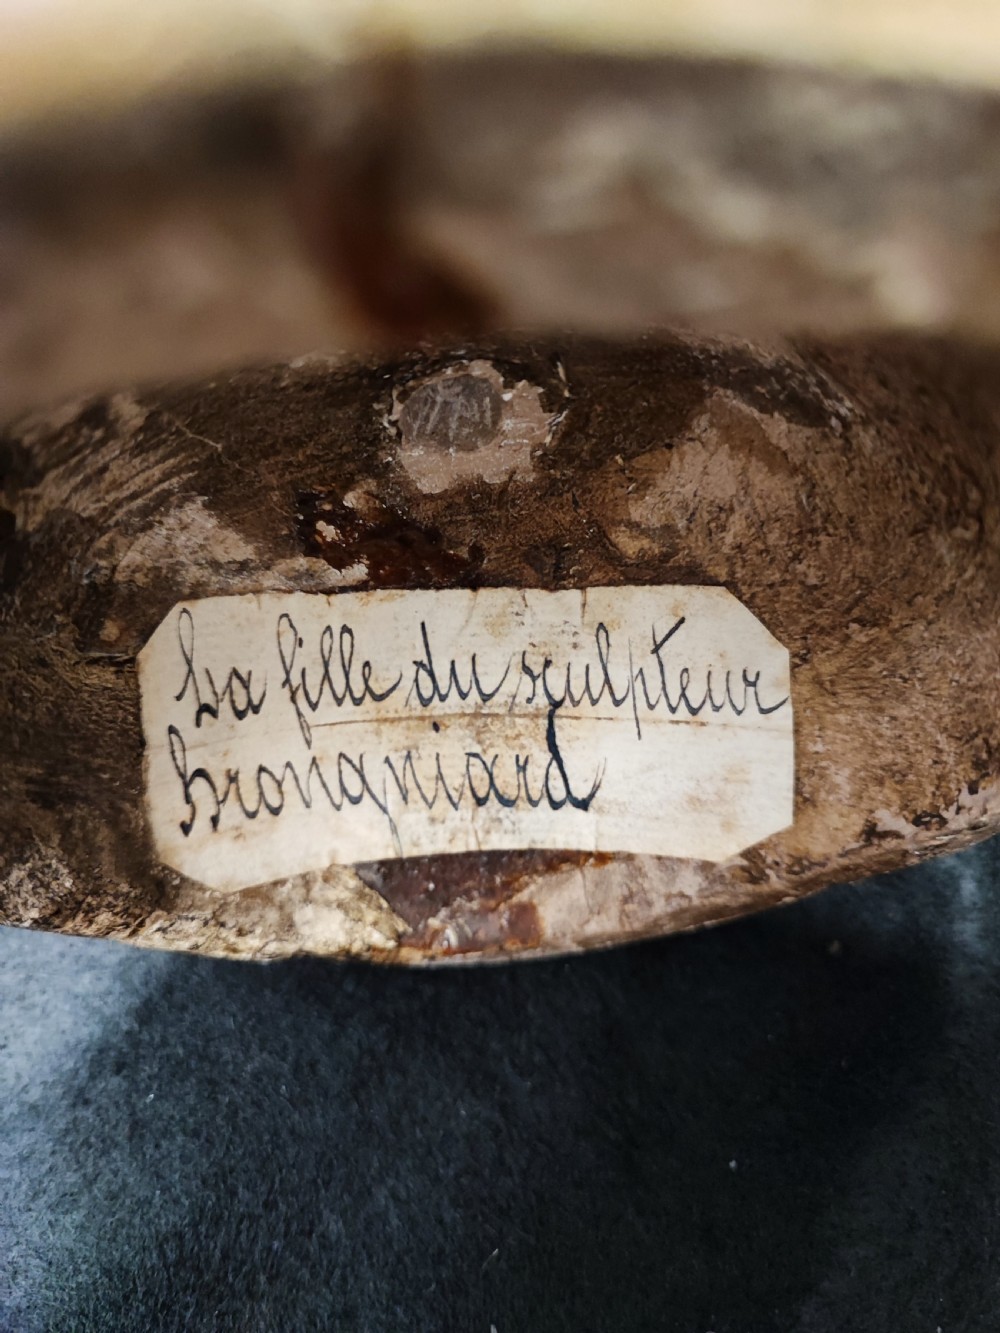 La fille du sculpteur
Brongniard